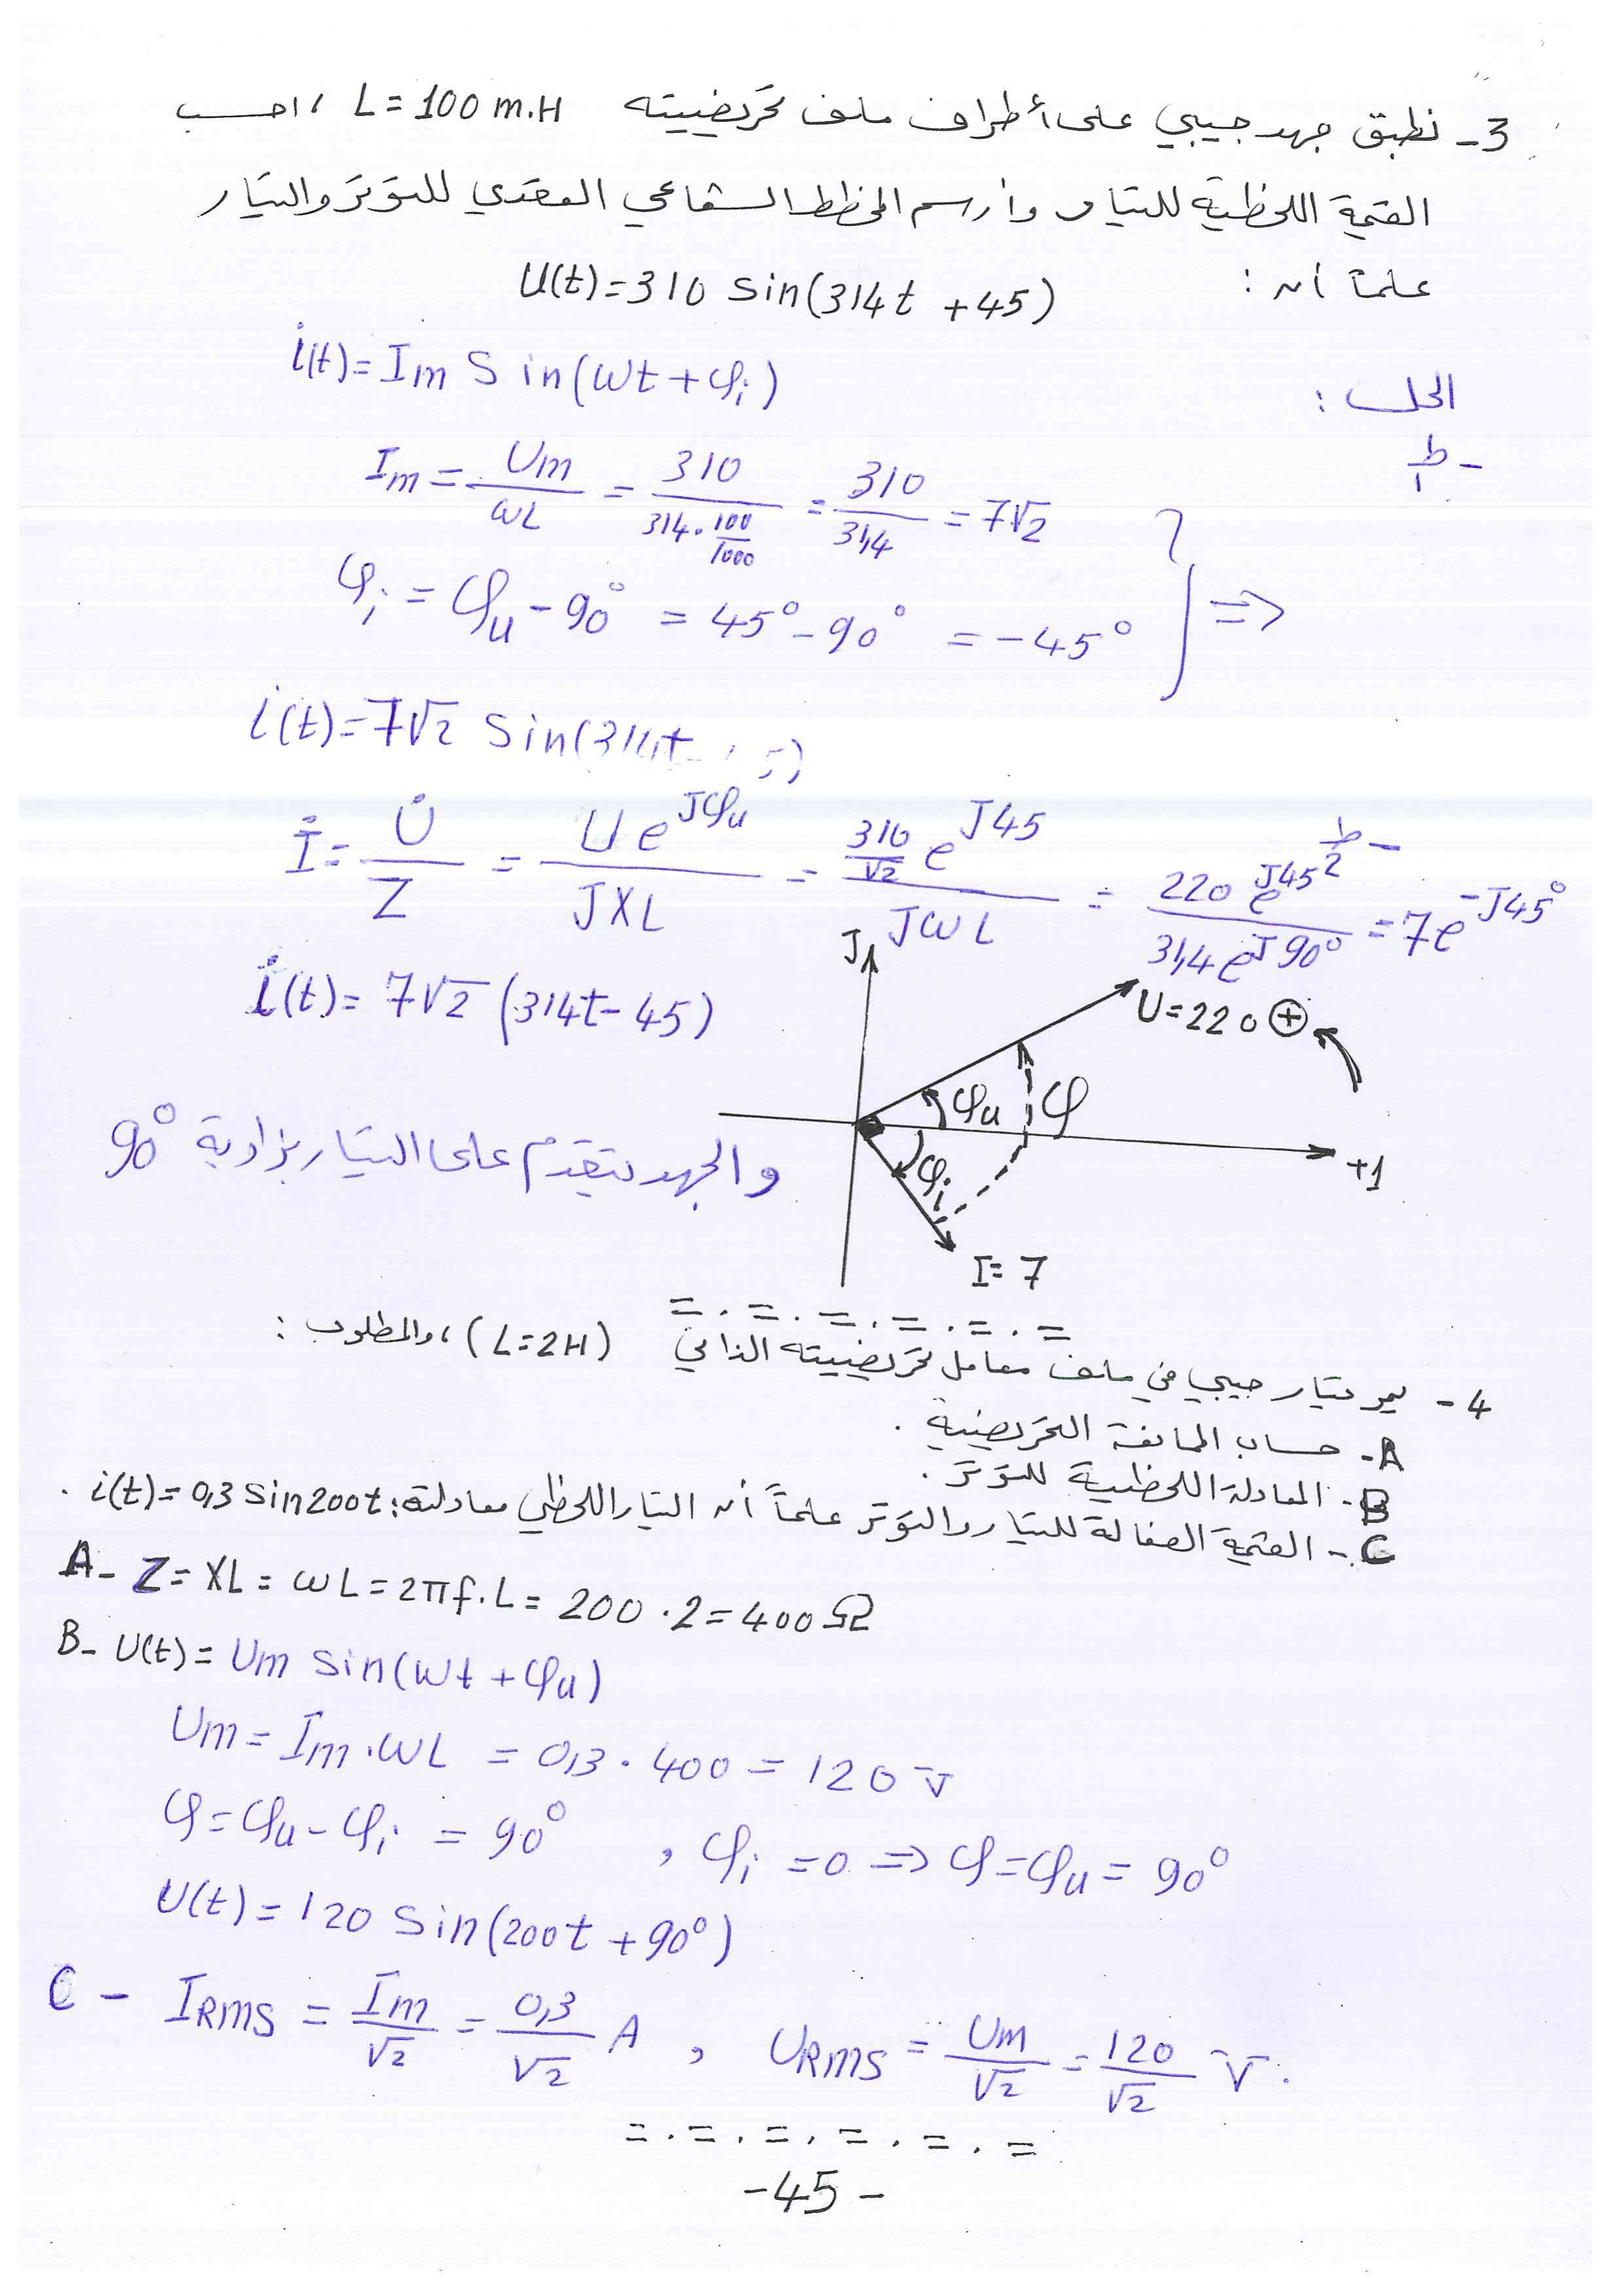 3- نطبق جهد جيبي على أطراف ملف تحريضيته L = 100 m.H ، احسب
القيمة اللحظية للتيار وارسم المخطط الشعاعي العقدي للتوتر والتيار
علماً أن : U(t) = 310 sin(314t + 45)
الحل :
i(t) = Im Sin(ωt + φi)
- ط1
Im = Um/ωL = 310/(314 . 100/1000) = 310/31,4 = 7√2
φi = φu - 90° = 45° - 90° = -45° } ⇒
i(t) = 7√2 Sin(314t - 45)
- ط2
İ = U̇/Z = U e^Jφu/JXL = (310/√2 e^J45)/JωL = 220 e^J45/31,4 e^J90° = 7e^-J45°
i(t) = 7√2 (314t - 45)
J
U = 220
+
φu
φ
φi
+1
I = 7
والجهد يتقدم على التيار بزاوية 90°
= . = . = . = . = . =
4 - يمر تيار جيبي في ملف معامل تحريضيته الذاتي (L = 2H) ، والمطلوب :
A- حساب الممانعة التحريضية .
B- المعادلة اللحظية للتوتر .
C- القيمة الفعالة للتيار والتوتر علماً أن التيار اللحظي معادلته : i(t) = 0,3 sin200t .
A- Z = XL = ωL = 2πf.L = 200 . 2 = 400 Ω
B- U(t) = Um sin(ωt + φu)
Um = Im . ωL = 0,3 . 400 = 120 V
φ = φu - φi = 90° , φi = 0 ⇒ φ = φu = 90°
U(t) = 120 sin(200t + 90°)
C - IRMS = Im/√2 = 0,3/√2 A , URMS = Um/√2 = 120/√2 V .
= . = . = . = . = . =
- 45 -